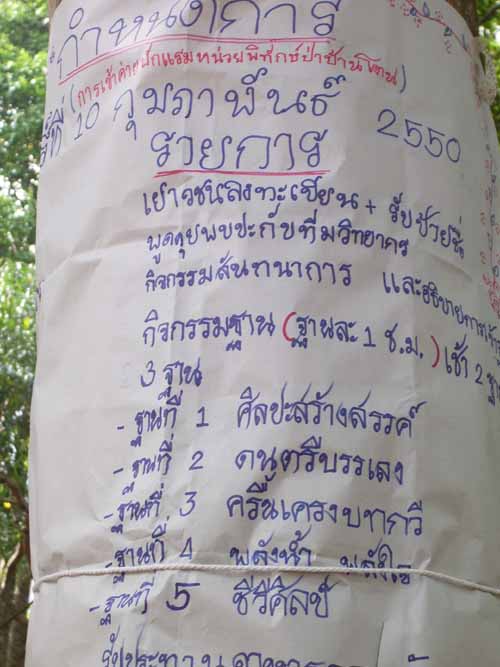 กำหนดการ
(การเข้าค่ายพักแรมหน่วยพิทักษ์ป่าบ้านโตน)
วันที่ 10 กุมภาพันธ์ 2550
รายการ
เยาวชนลงทะเบียน + รับป้ายชื่อ
พูดคุยพบปะกับทีมวิทยากร
กิจกรรมสันทนาการ และอธิบาย
กิจกรรมฐาน (ฐานละ 1 ช.ม.) เช้า 2 ฐาน
3 ฐาน
- ฐานที่ 1 ศิลปะสร้างสรรค์
- ฐานที่ 2 ดนตรีบรรเลง
- ฐานที่ 3 ครื้นเครงบทกวี
- ฐานที่ 4 พลังน้ำ พลังใจ
- ฐานที่ 5 ชีวีศิลป์
รับประทานอาหาร